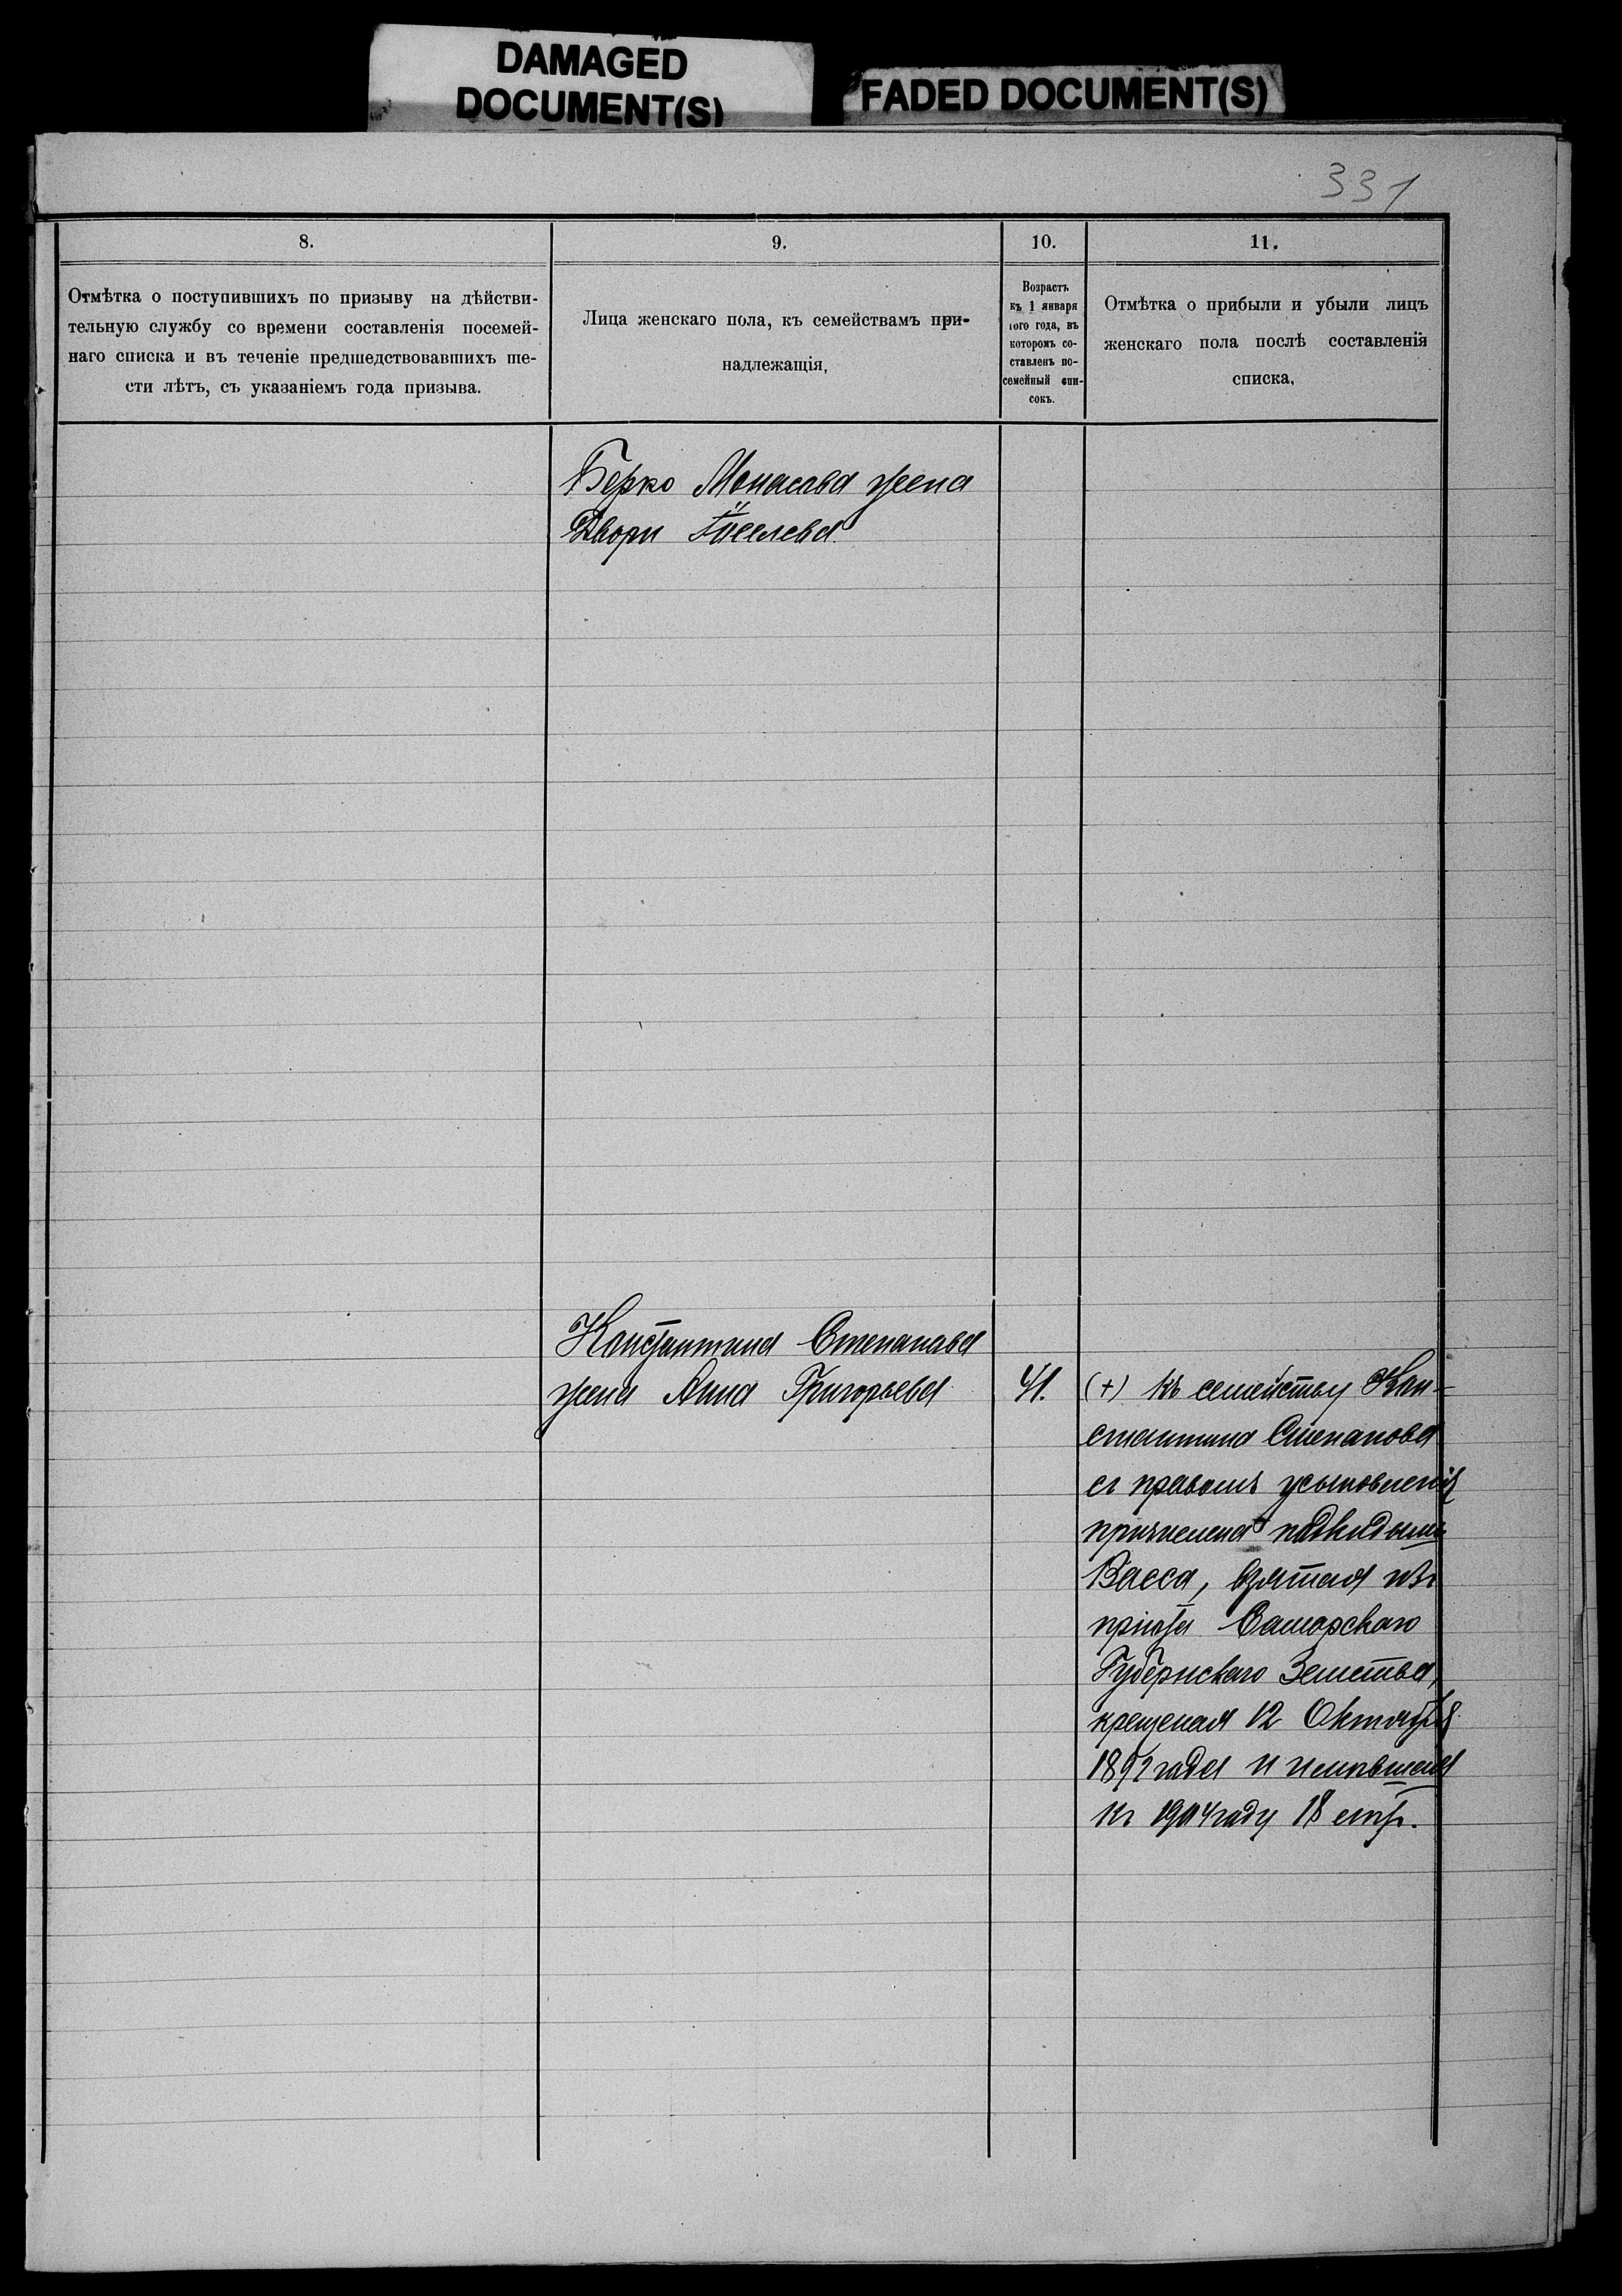 DAMAGED
DOCUMENT(S)
FADED DOCUMENT(S)
331
8.
9.
10.
11.
Отмѣтка о поступившихъ по призыву на дѣйстви-
тельную службу со времени составленія посемей-
наго списка и въ теченіе предшедствовавшихъ ше-
сти лѣтъ, съ указаніемъ года призыва.
Лица женскаго пола, къ семействамъ при-
надлежащія,
Возрастъ
къ 1 января
того года, въ
которомъ со-
ставленъ по-
семейный спи-
сокъ.
Отмѣтка о прибыли и убыли лицъ
женскаго пола послѣ составленія
списка,
Берко Монасова жена
Двори
Константина Степанова
жена Анна Григорьева
41.
(+) къ семейству Кон-
стантина Степанова
съ правомъ усыновленія
причислена подкидышъ
Васса, взятая изъ
пріюта Самарскаго
Губернскаго Земства,
крещеная 12 Октября
1892 года и
къ 1904 году 18